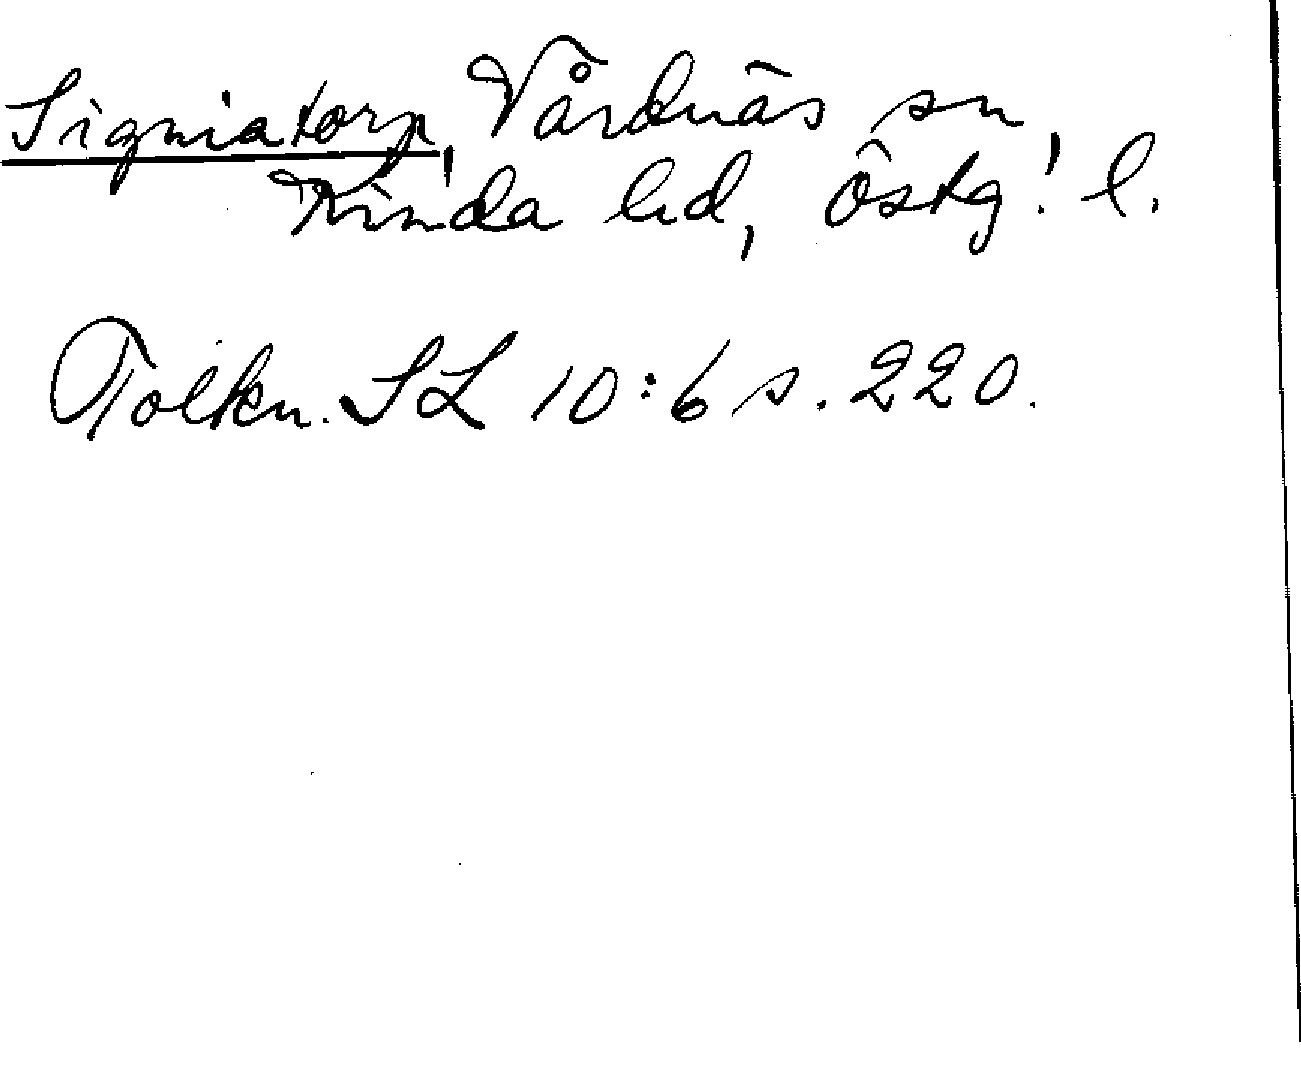 Signiatorp, Vårdnäs sn,
Kinda hd, Östg. l.
Tolkn. SL 10:6 s. 220.